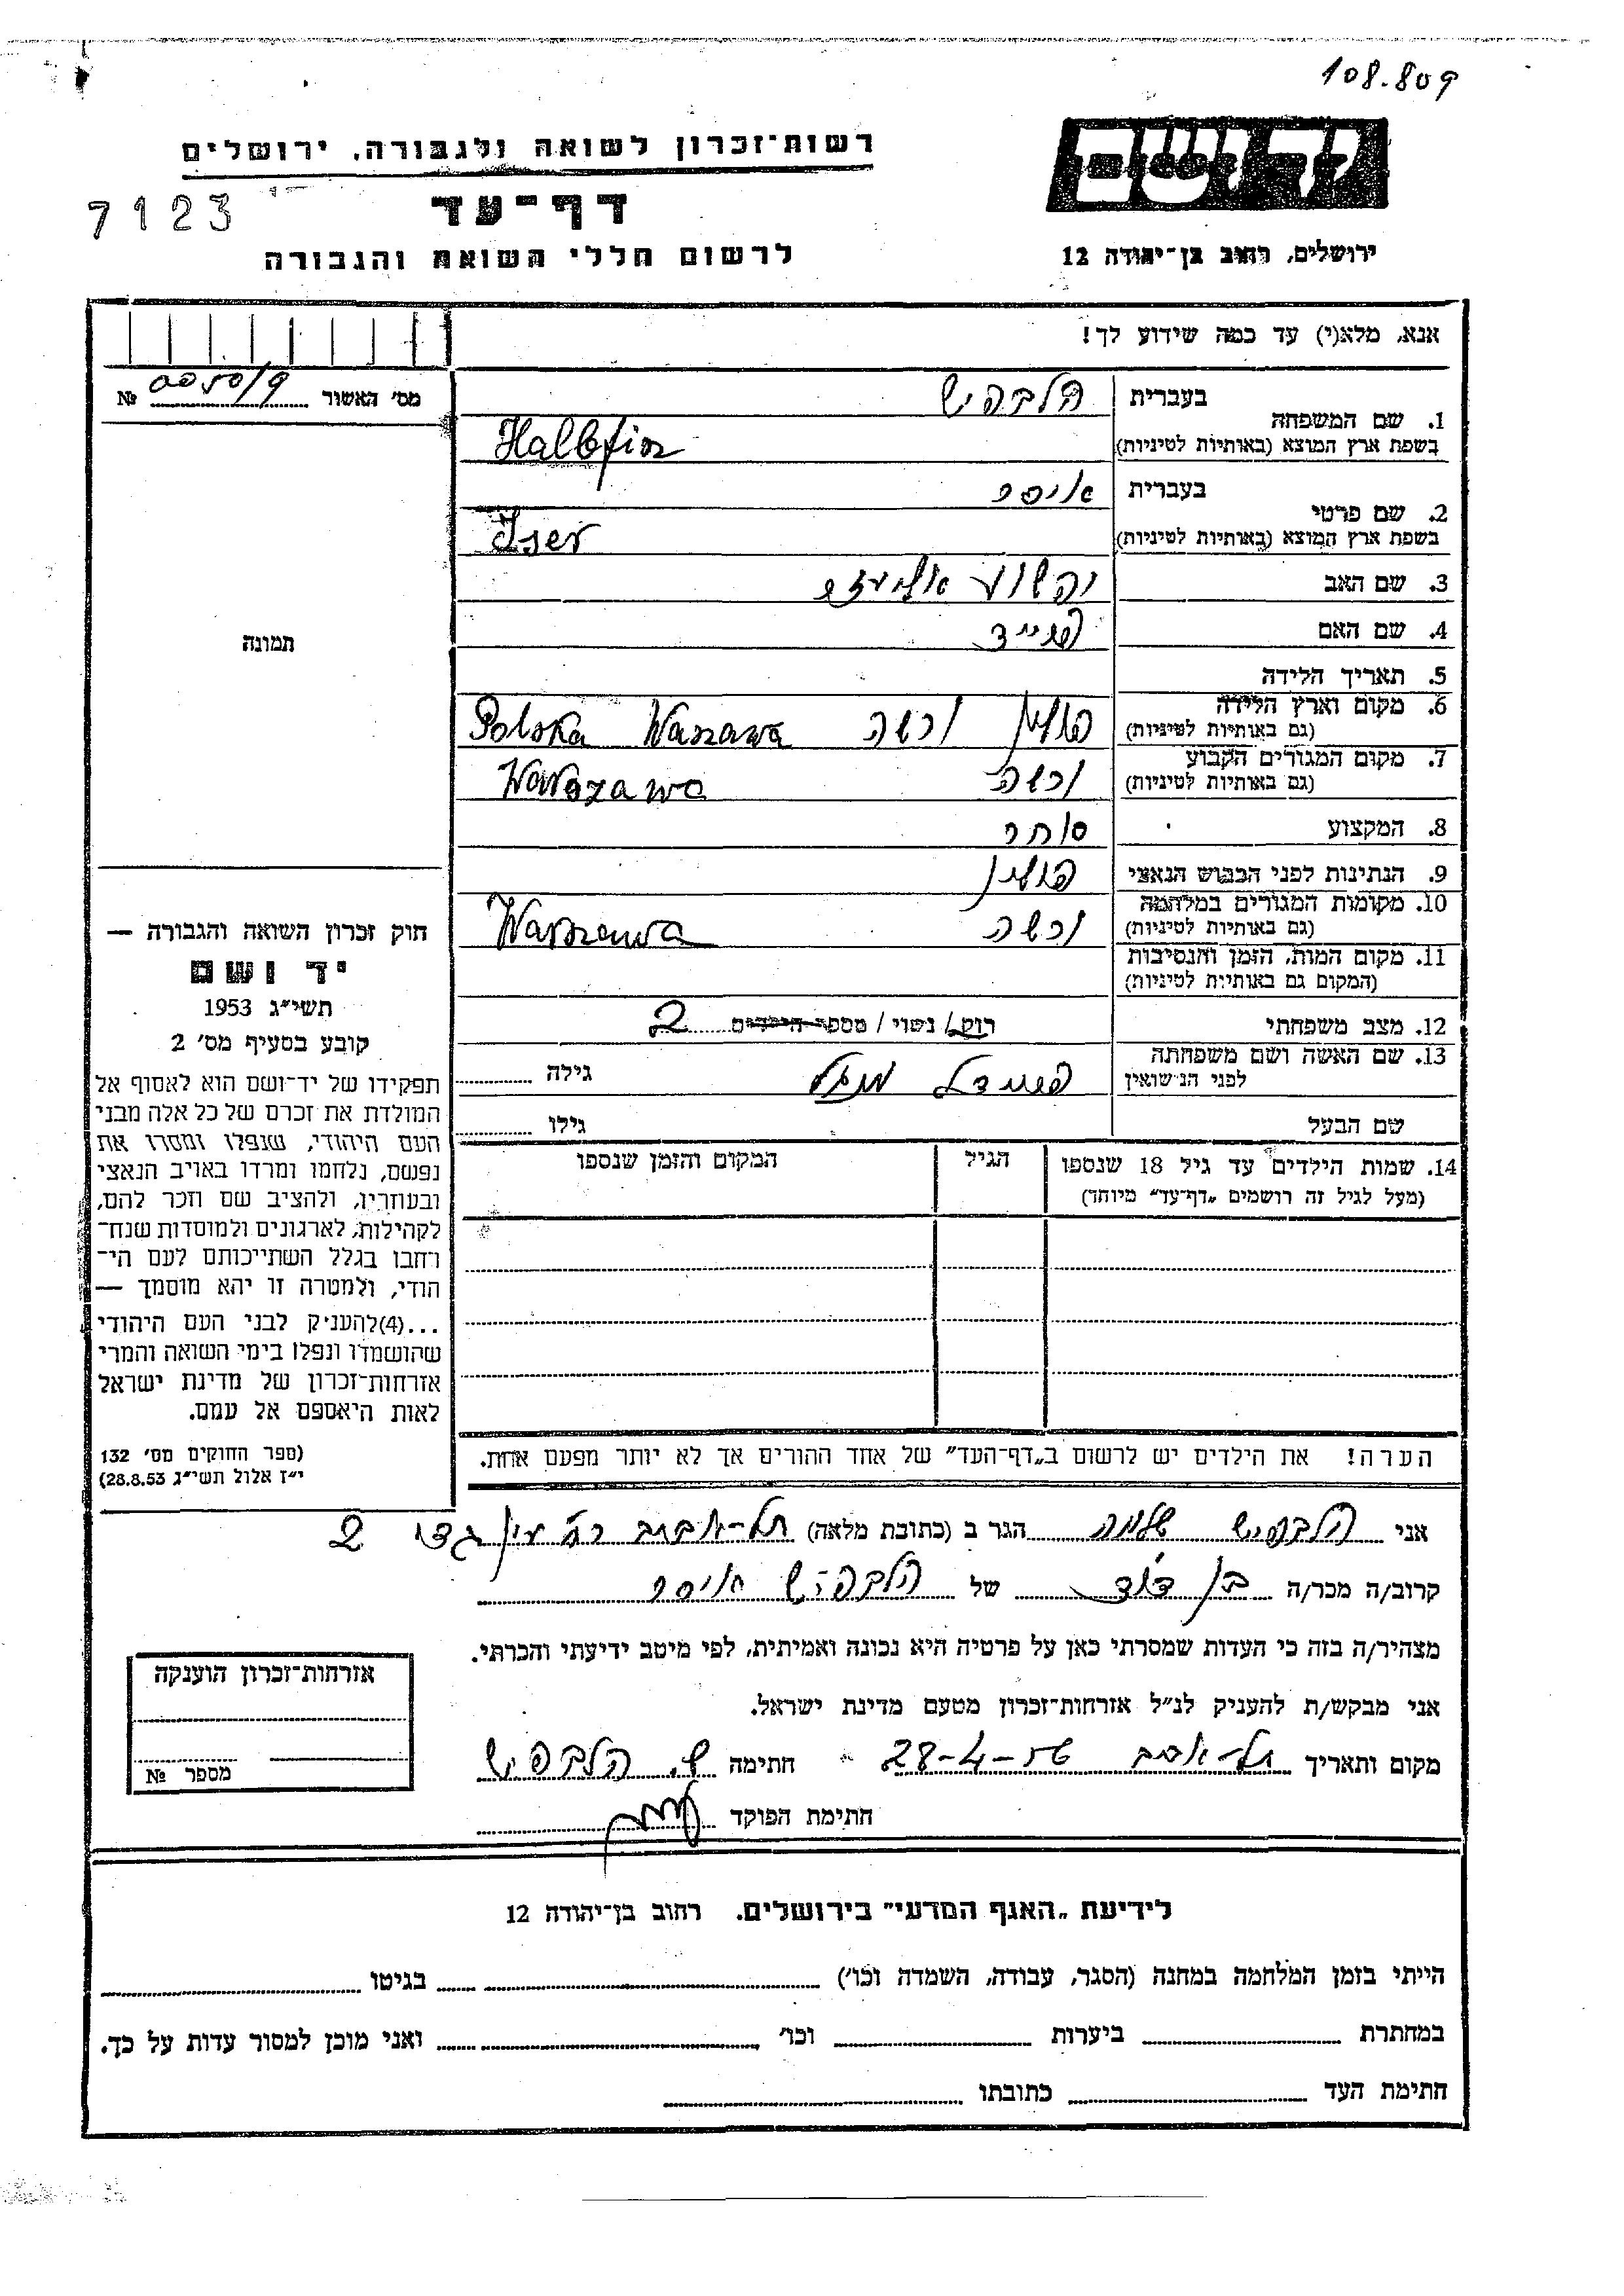 108.809
יד ושם
רשות־זכרון לשואה ולגבורה, ירושלים
7123
דף־עד
לרשום חללי השואה והגבורה
ירושלים, רחוב בן־יהודה 12
אנא, מלא(י) עד כמה שידוע לך!
מס' האשור № 0050/9
1. שם המשפחה בעברית הלבפיש
בשפת ארץ המוצא (באותיות לטיניות) Halbfisz
2. שם פרטי בעברית איסר
בשפת ארץ המוצא (באותיות לטיניות) Iser
3. שם האב יהושע אליעזר
4. שם האם
5. תאריך הלידה
6. מקום וארץ הלידה (גם באותיות לטיניות) פולין ורשה Warszawa Polska
7. מקום המגורים הקבוע (גם באותיות לטיניות) ורשה Warszawa
8. המקצוע סוחר
9. הנתינות לפני הכבוש הנאצי פולין
10. מקומות המגורים במלחמה (גם באותיות לטיניות) ורשה Warszawa
11. מקום המות, הזמן והנסיבות (המקום גם באותיות לטיניות)
12. מצב משפחתי רוק/ נשוי / מספר הילדים 2
13. שם האשה ושם משפחתה לפני הנשואין גילה
שם הבעל גילו
14. שמות הילדים עד גיל 18 שנספו
(מעל לגיל זה רושמים „דף־עד" מיוחד)
הגיל
המקום והזמן שנספו
תמונה
חוק זכרון השואה והגבורה —
יד ושם
תשי"ג 1953
קובע בסעיף מס' 2
תפקידו של יד־ושם הוא לאסוף אל
המולדת את זכרם של כל אלה מבני
העם היהודי, שנפלו ומסרו את
נפשם, נלחמו ומרדו באויב הנאצי
ובעוזריו, ולהציב שם וזכר להם,
לקהילות, לארגונים ולמוסדות שנח־
רחבו בגלל השתייכותם לעם הי־
הודי, ולמטרה זו יהא מוסמך —
...(4)להעניק לבני העם היהודי
שהושמדו ונפלו בימי השואה והמרי
אזרחות־זכרון של מדינת ישראל
לאות היאספם אל עמם.
(ספר החוקים מס' 132
י"ז אלול תשי"ג 28.8.53)
הערה! את הילדים יש לרשום ב„דף־העד" של אחד ההורים אך לא יותר מפעם אחת.
אני הלבפיש שלמה הגר ב (כתובת מלאה) תל-אביב רח' עין גדי 2
קרוב/ה מכר/ה בן דוד של הלבפיש איסר
מצהיר/ה בזה כי העדות שמסרתי כאן על פרטיה היא נכונה ואמיתית, לפי מיטב ידיעתי והכרתי.
אני מבקש/ת להעניק לנ"ל אזרחות־זכרון מטעם מדינת ישראל.
מקום ותאריך תל-אביב 28-4-56 חתימה ש. הלבפיש
חתימת הפוקד
אזרחות־זכרון הוענקה
מספר №
לידיעת „האגף המדעי" בירושלים. רחוב בן־יהודה 12
הייתי בזמן המלחמה במחנה (הסגר, עבודה, השמדה וכו') בגיטו
במחתרת ביערות וכו' ואני מוכן למסור עדות על כך.
חתימת העד כתובתו